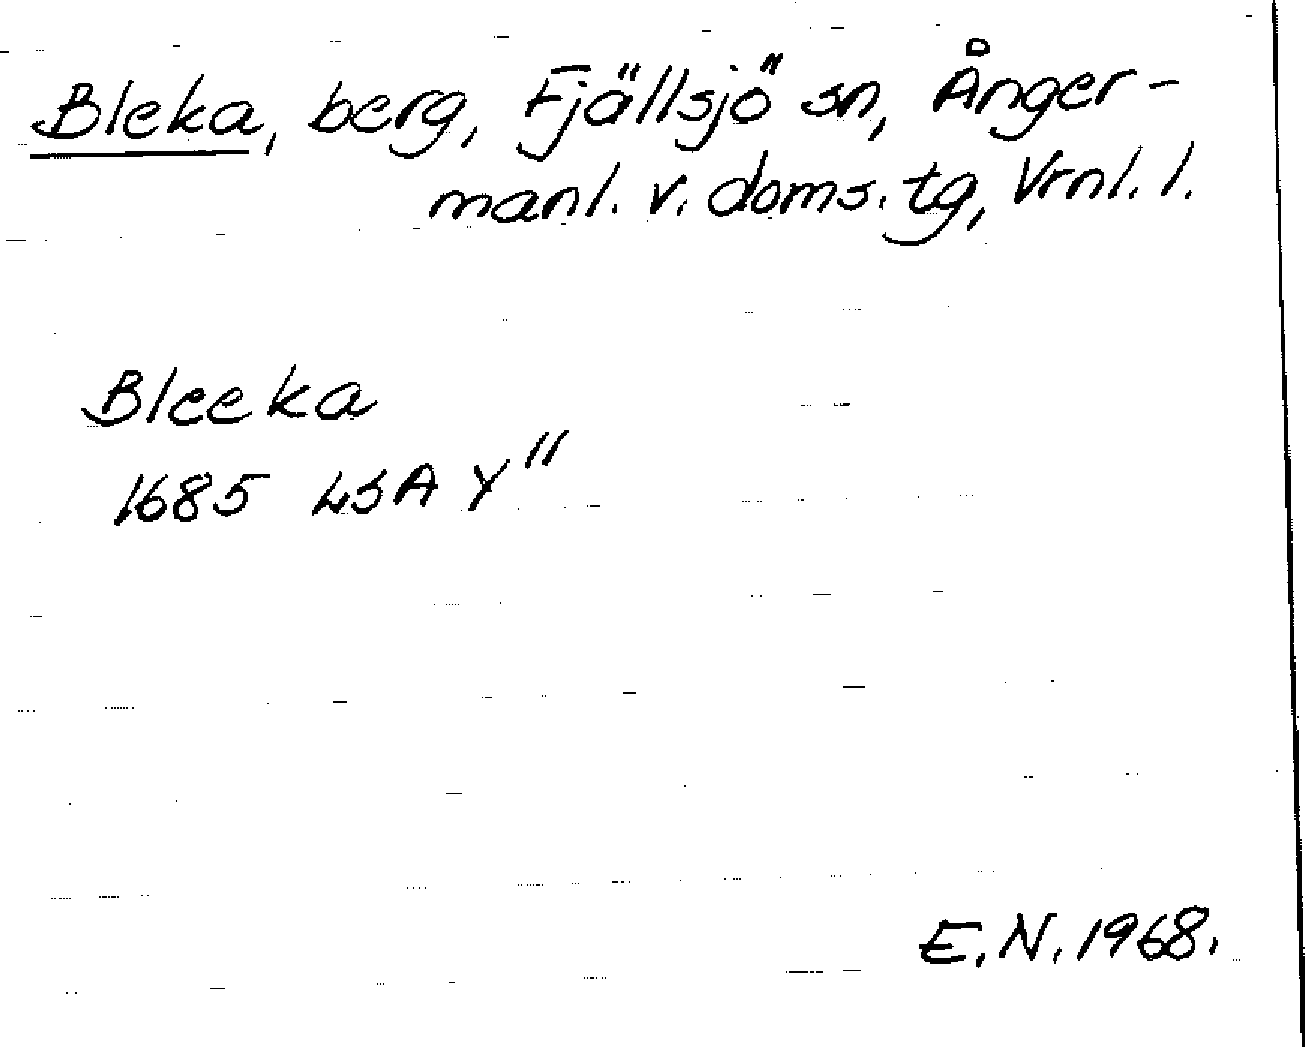 Bleka, berg, Fjällsjö sn, Ånger-
manl. v. doms. tg, Vrnl. l.
Bleeka
1685 LSA Y"
E.N. 1968.